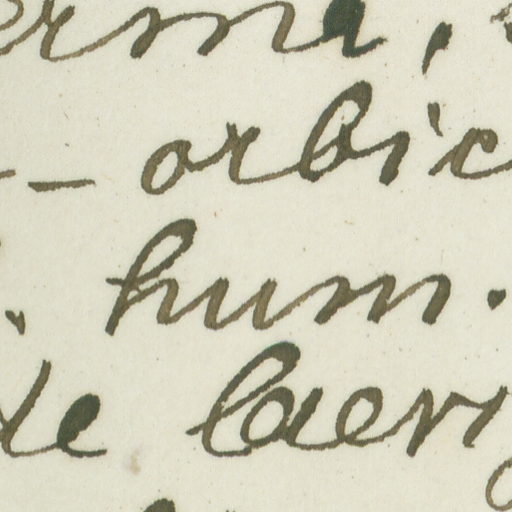 erma,
- orbic
hum.
te laevi